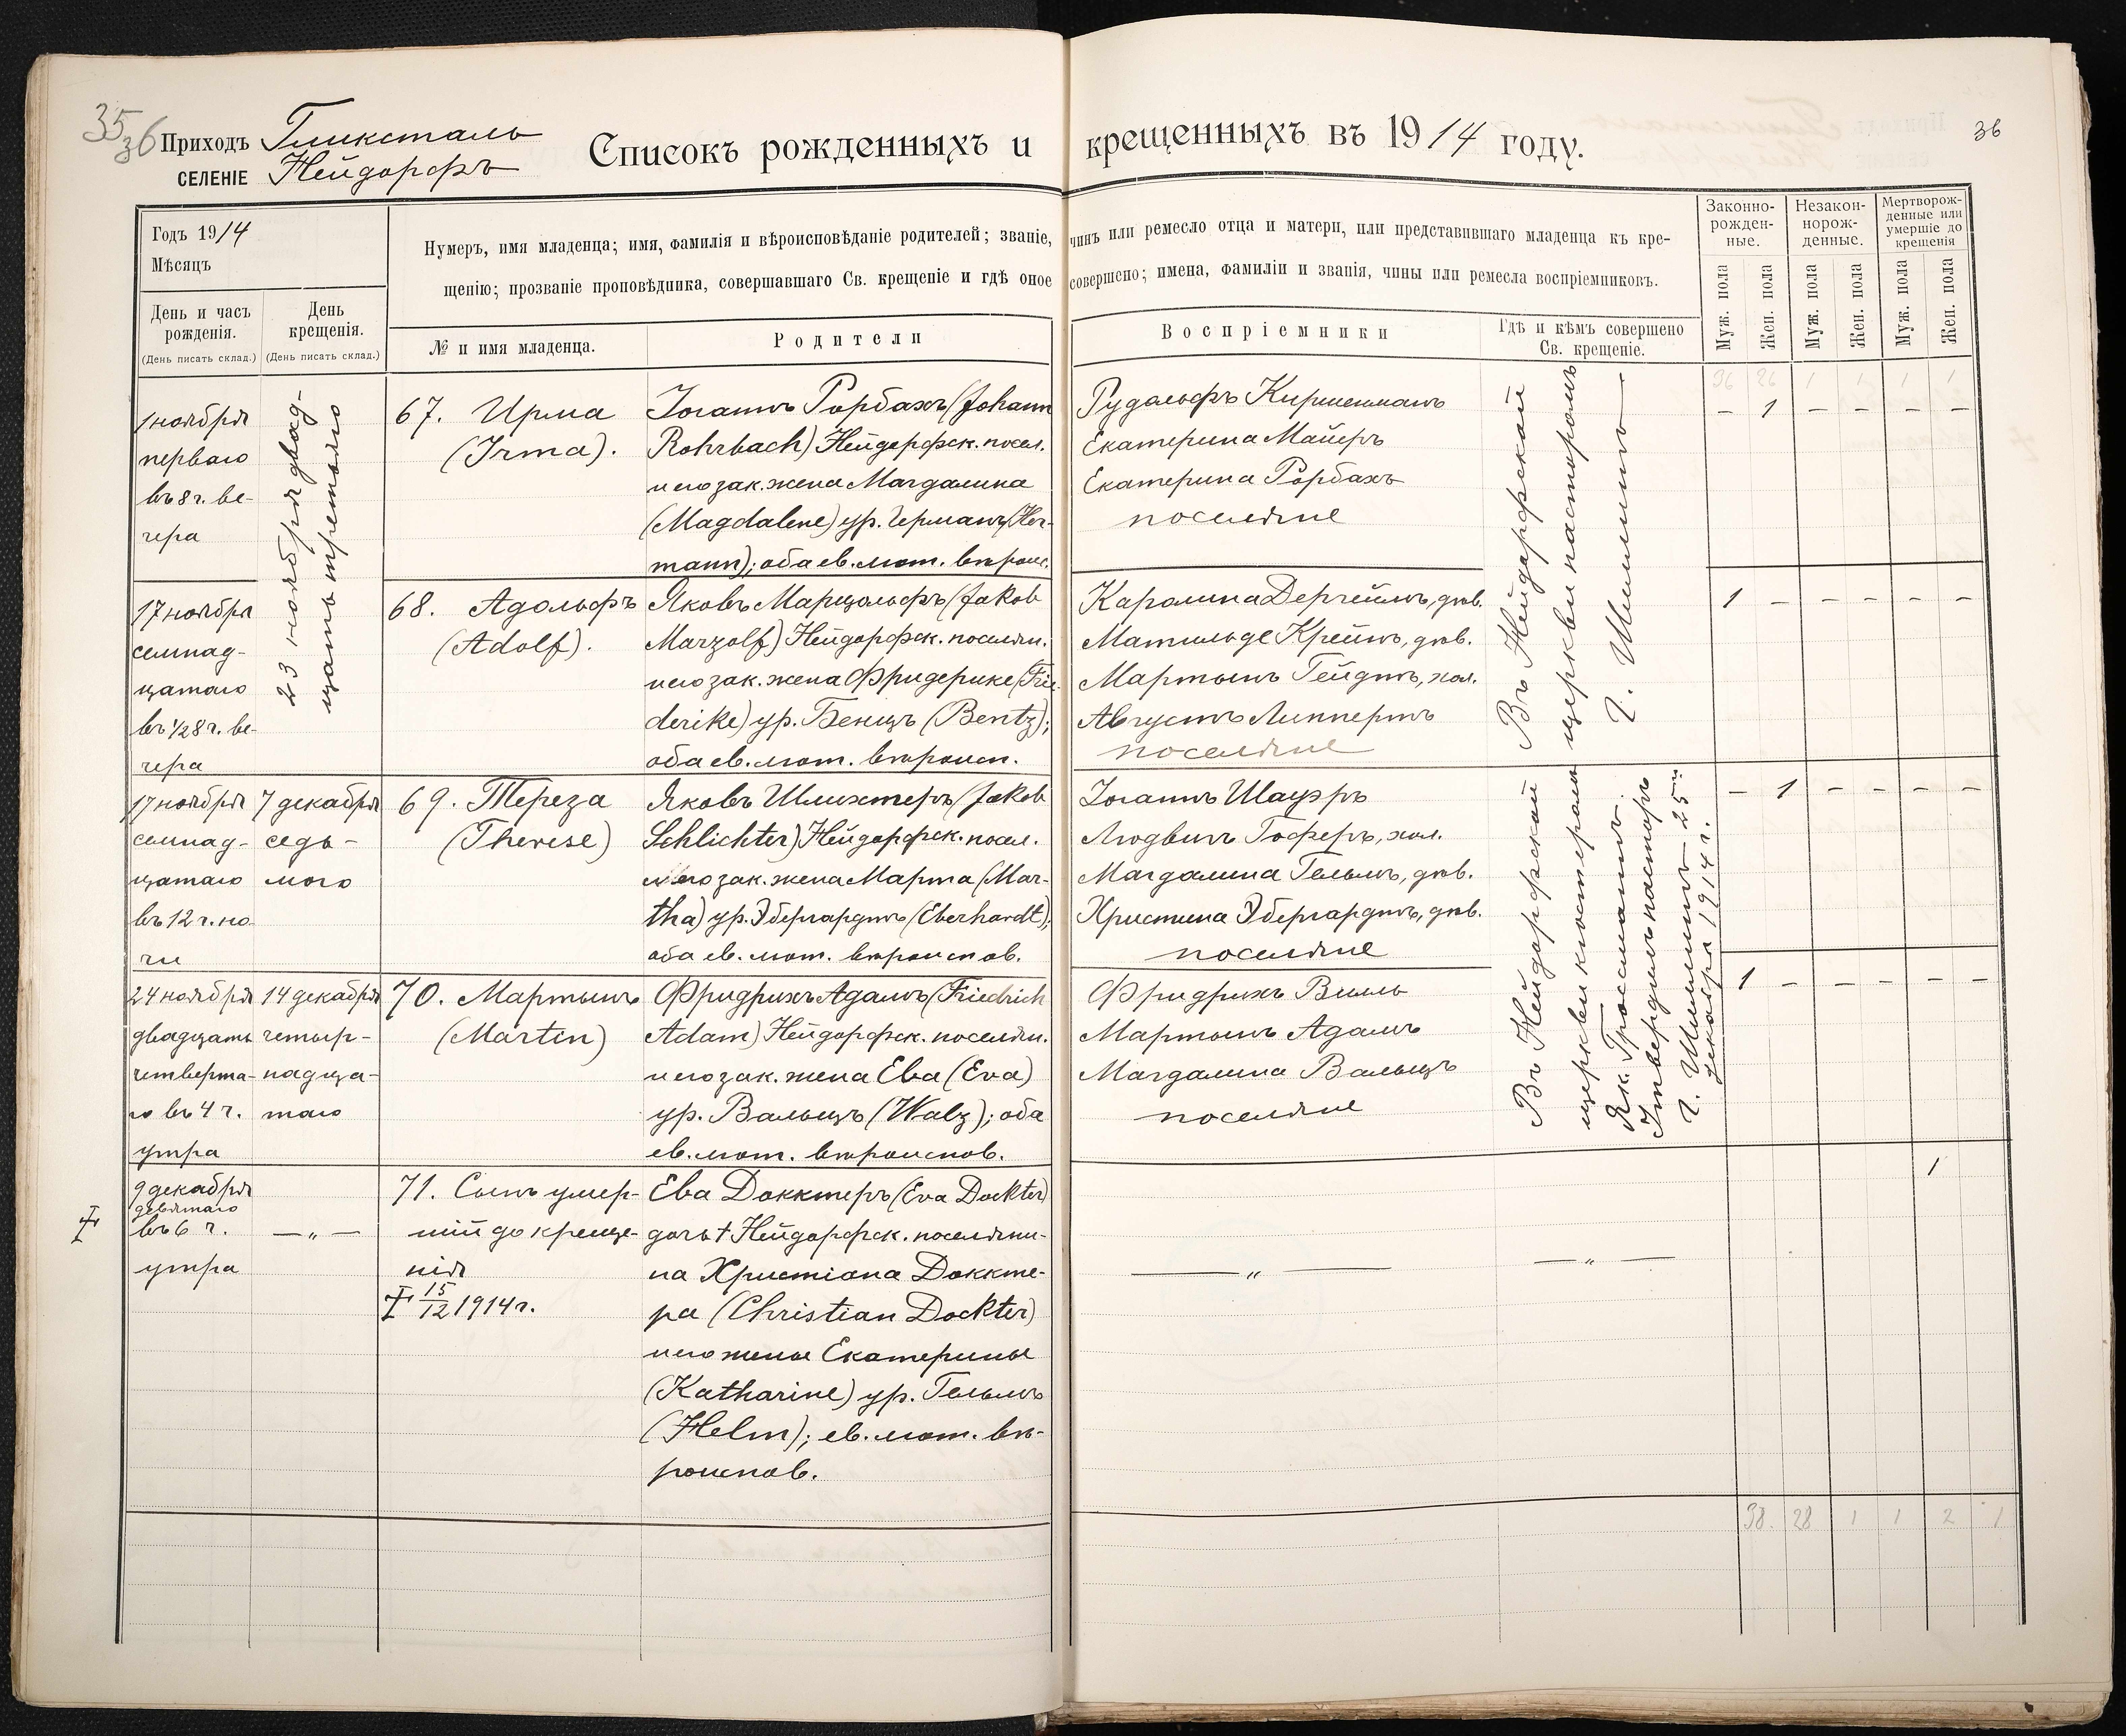 35
36
Приходъ Глюксталь
селеніе Нейдорфъ
Списокъ рожденныхъ и крещенныхъ въ 1914 году.
36
Годъ 1914
Мѣсяцъ
День и часъ рожденія.
(День писать склад.)
День крещенія.
(День писать склад.)
Нумеръ, имя младенца; имя, фамилія и вѣроисповѣданіе родителей; званіе, чинъ или ремесло отца и матери, или представившаго младенца къ кре-
щенію; прозваніе проповѣдника, совершавшаго Св. крещеніе и гдѣ оное совершено; имена, фамиліи и званія, чины или ремесла воспріемниковъ.
№ и имя младенца.
Родители
Воспріемники
Гдѣ и кѣмъ совершено
Св. крещеніе.
Законно-
рожден-
ные.
Незакон-
норож-
денные.
Мертворож-
денные или
умершіе до
крещенія
Муж. пола
Жен. пола
Муж. пола
Жен. пола
Муж. пола
Жен. пола
36 26 1 1 1 1
1 ноября
перваго
въ 8 ч. ве-
чера
23 ноября двад-
цать третьяго
67. Ирма
(Irma).
Іоганъ Рорбахъ (Johann
Rohrbach) Нейдорфск. посел.
и его зак. жена Магдалина
(Magdalene) ур. Германъ (Her-
mann); оба ев. лют. вѣроис.
Рудольфъ Киршенманъ
Екатерина Майеръ
Екатерина Рорбахъ
поселяне
Въ Нейдорфской
церкви пасторомъ
Г. Шиллингъ
– 1 – – – –
17 ноября
семнад-
цатаго
въ ½8 ч. ве-
чера
68. Адольфъ
(Adolf).
Яковъ Марцольфъ (Jakob
Marzolf) Нейдорфск. поселян.
и его зак. жена Фридерике (Frie-
derike) ур. Бенцъ (Bentz);
оба ев. лют. вѣроисп.
Каролина Дергеймъ, дѣв.
Матильде Крейнъ, дѣв.
Мартынъ Гейдтъ, хол.
Августъ Липпертъ
поселяне
1 – – – – –
17 ноября
семнад-
цатаго
въ 12 ч. но-
чи
7 декабря
седь-
мого
69. Тереза
(Therese)
Яковъ Шлихтеръ (Jakob
Schlichter) Нейдорфск. посел.
и его зак. жена Марта (Mar-
tha) ур. Эбергардтъ (Eberhardt);
оба ев. лют. вѣроиспов.
Іоганъ Шауэръ
Людвигъ Гоферъ, хол.
Магдалина Гельмъ, дѣв.
Христина Эбергардтъ, дѣв.
поселяне
Въ Нейдорфской
церкви кюстеромъ
Як. Гросманъ.
Утвердилъ пасторъ
Г. Шиллингъ 25го
декабря 1914 г.
– 1 – – – –
24 ноября
двадцать
четверта-
го въ 4 ч.
утра
14 декабря
четыр-
надца-
таго
70. Мартынъ
(Martin)
Фридрихъ Адамъ (Friedrich
Adam) Нейдорфск. поселян.
и его зак. жена Ева (Eva)
ур. Вальцъ (Walz); оба
ев. лют. вѣроиспов.
Фридрихъ Вилль
Мартынъ Адамъ
Магдалина Вальцъ
поселяне
1 – – – – –
9 декабря
девятаго
въ 6 ч.
утра
— „ —
71. Сынъ умер-
шій до креще-
нія
† 15/12 1914 г.
Ева Докктеръ (Eva Dockter)
дочь † Нейдорфск. поселяни-
на Христіана Доккте-
ра (Christian Dockter)
и его жены Екатерины
(Katharine) ур. Гельмъ
(Helm); ев. лют. вѣ-
роиспов.
— „ —
— „ —
1
38. 28 1 1 2 1